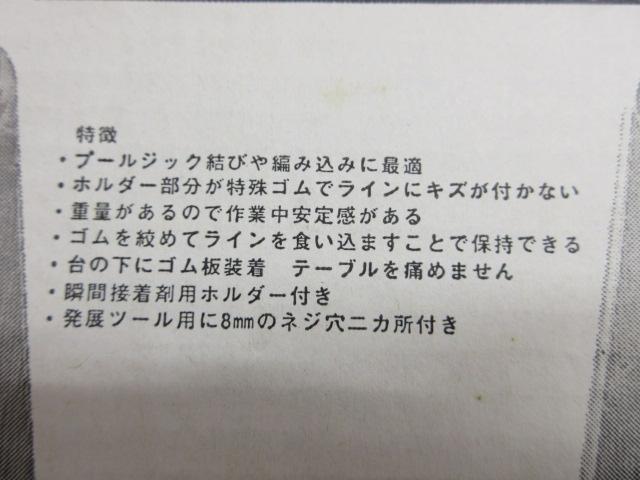 特徴
・プールジック結びや編み込みに最適
・ホルダー部分が特殊ゴムでラインにキズが付かない
・重量があるので作業中安定感がある
・ゴムを絞めてラインを食い込ますことで保持できる
・台の下にゴム板装着　テーブルを痛めません
・瞬間接着剤用ホルダー付き
・発展ツール用に8mmのネジ穴二カ所付き